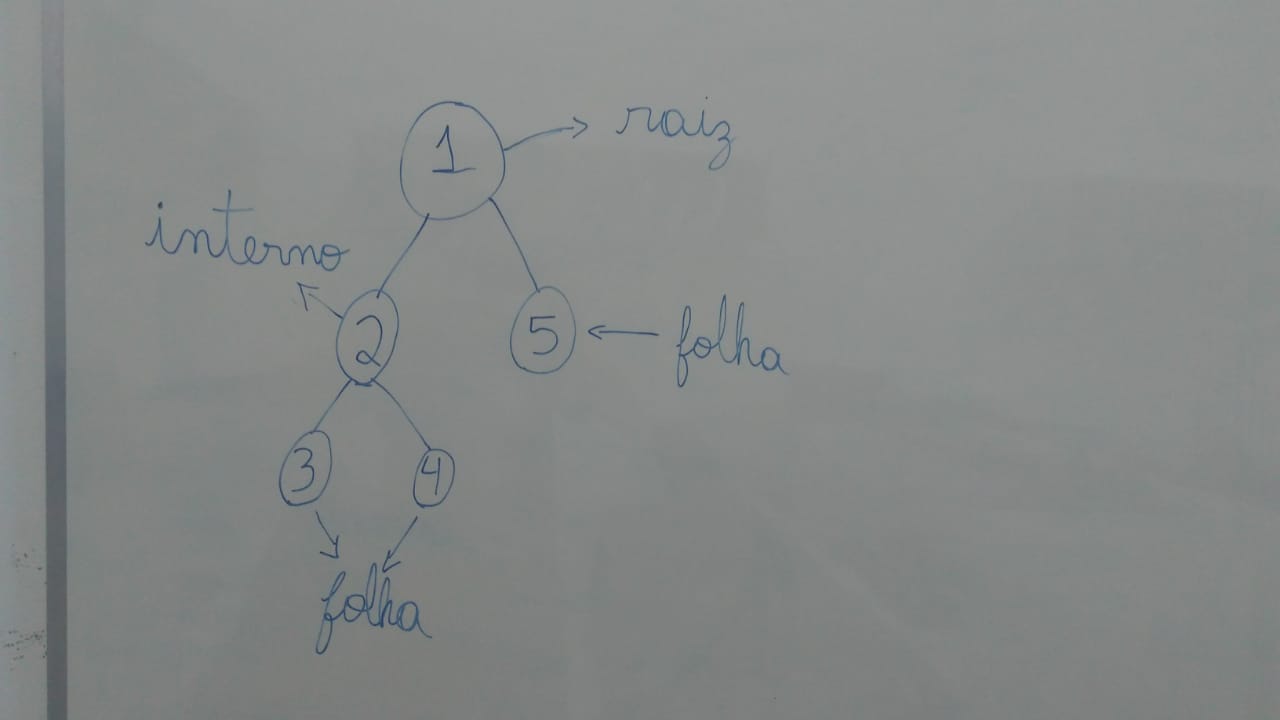 1 raiz
interno
2 5 folha
3 4
folha